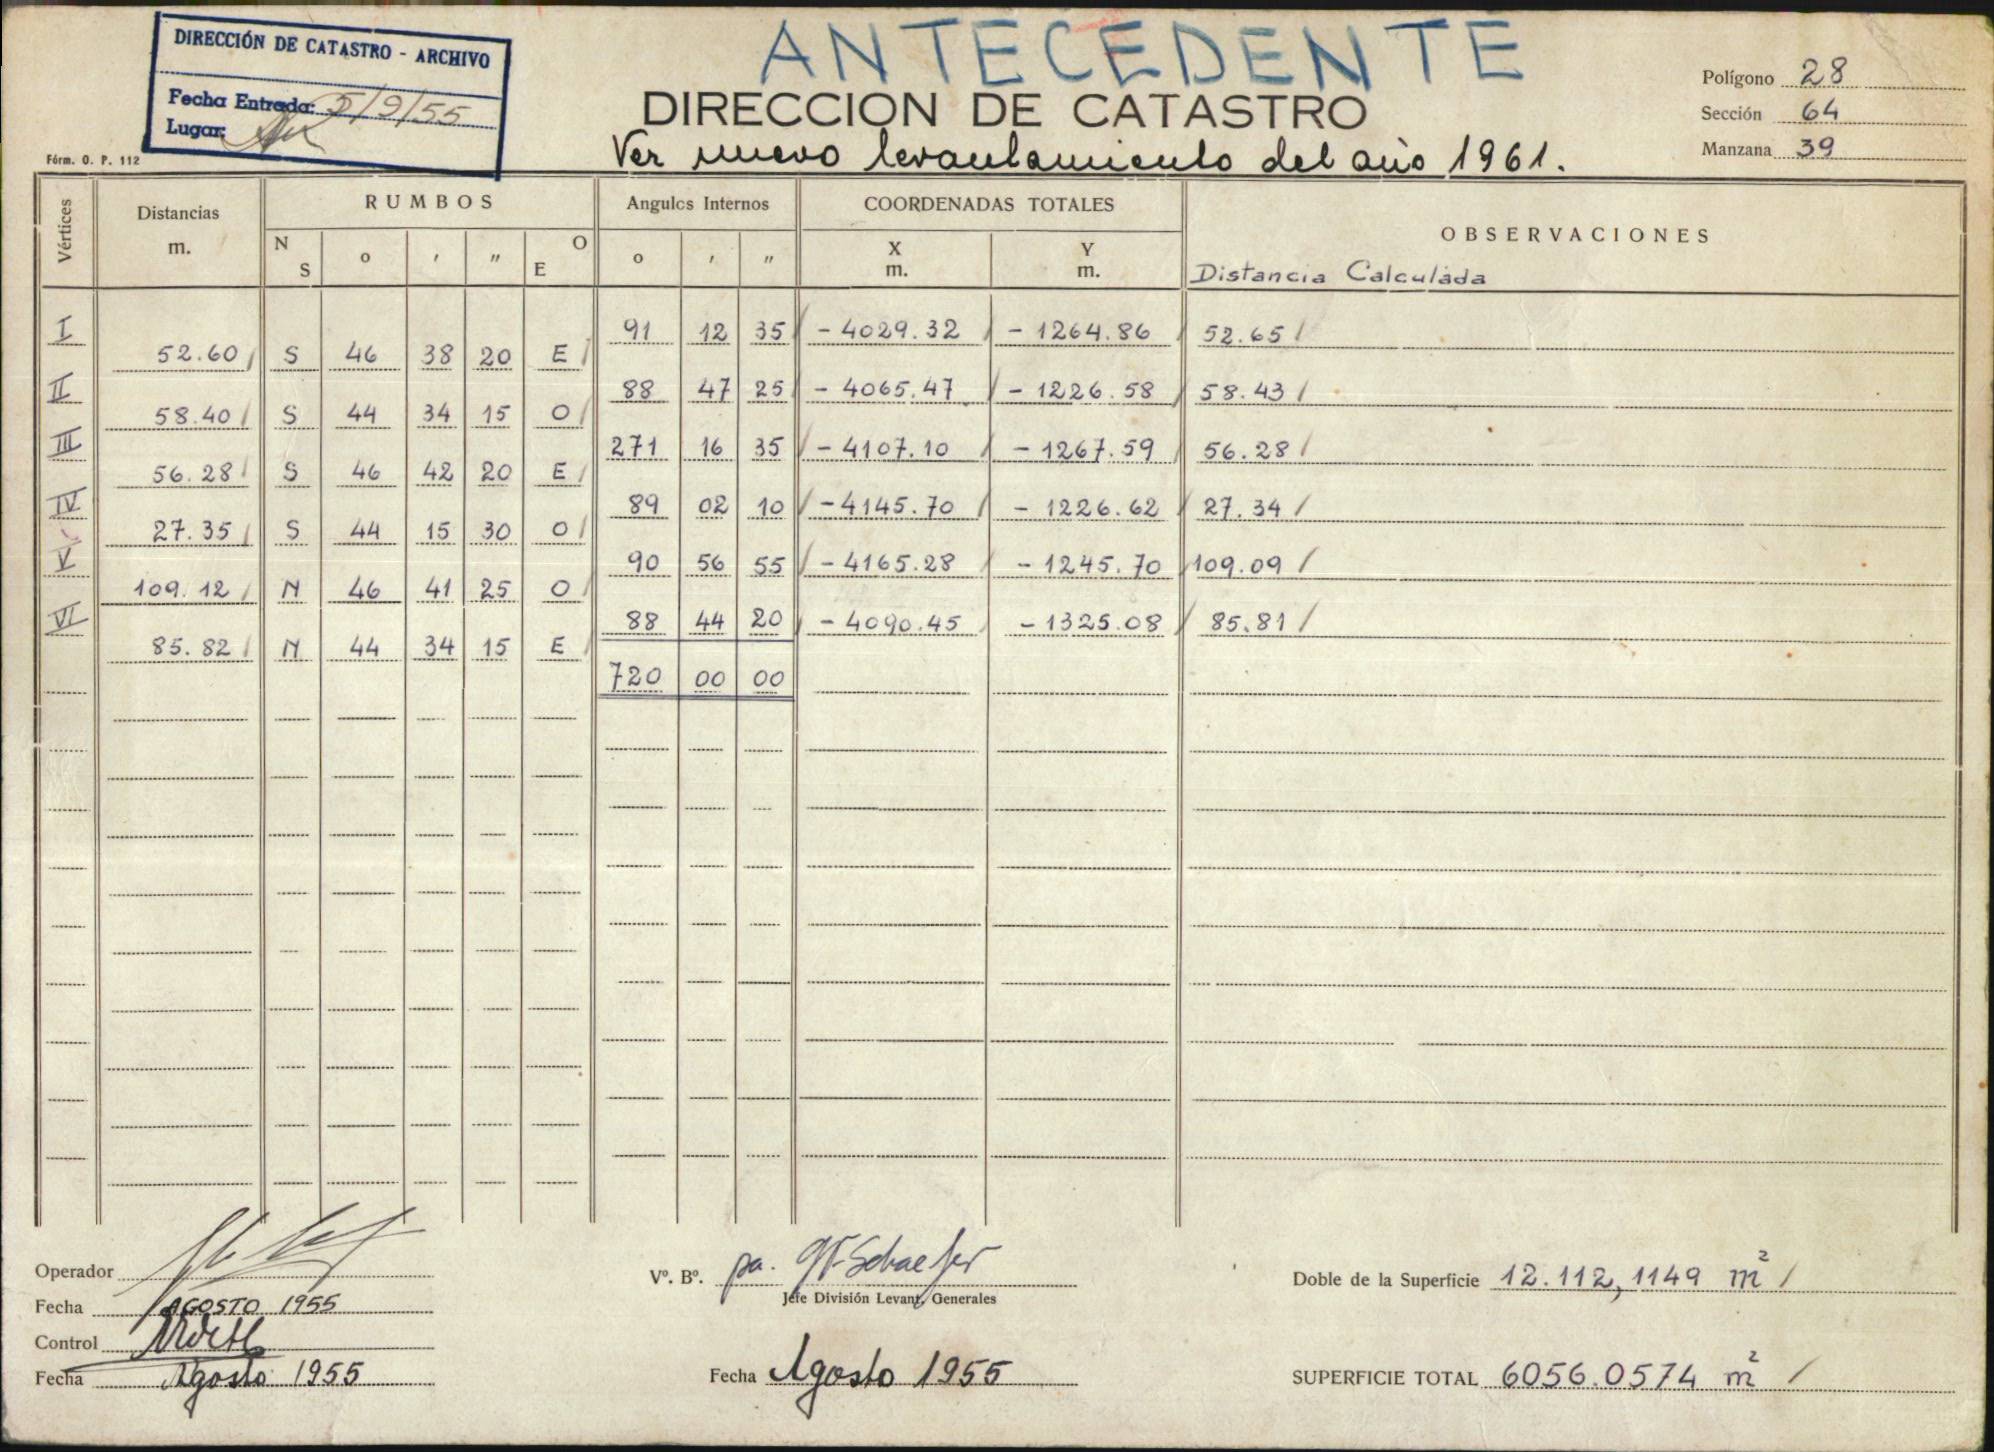 ANTECEDENTE
DIRECCIÓN DE CATASTRO - ARCHIVO
Fecha Entrada: 5/9/55
Lugar:
DIRECCION DE CATASTRO
Ver nuevo levantamiento del año 1961.
Polígono 28
Sección 64
Manzana 39
Fórm. O. P. 112
Vértices Distancias m. RUMBOS Angulos Internos COORDENADAS TOTALES OBSERVACIONES
N S o ' " O E o ' " X m. Y m. Distancia Calculada
I 91 12 35 - 4029.32 - 1264.86 52.65
52.60 S 46 38 20 E
II 88 47 25 - 4065.47 - 1226.58 58.43
58.40 S 44 34 15 O
III 271 16 35 - 4107.10 - 1267.59 56.28
56.28 S 46 42 20 E
IV 89 02 10 - 4145.70 - 1226.62 27.34
27.35 S 44 15 30 O
V 90 56 55 - 4165.28 - 1245.70 109.09
109.12 N 46 41 25 O
VI 88 44 20 - 4090.45 - 1325.08 85.81
85.82 N 44 34 15 E
720 00 00
Operador
Fecha AGOSTO 1955
Control
Fecha Agosto 1955
Vº. Bº. pa. Schaefer
Jefe División Levant. Generales
Fecha Agosto 1955
Doble de la Superficie 12.112,1149 m²
SUPERFICIE TOTAL 6056.0574 m²